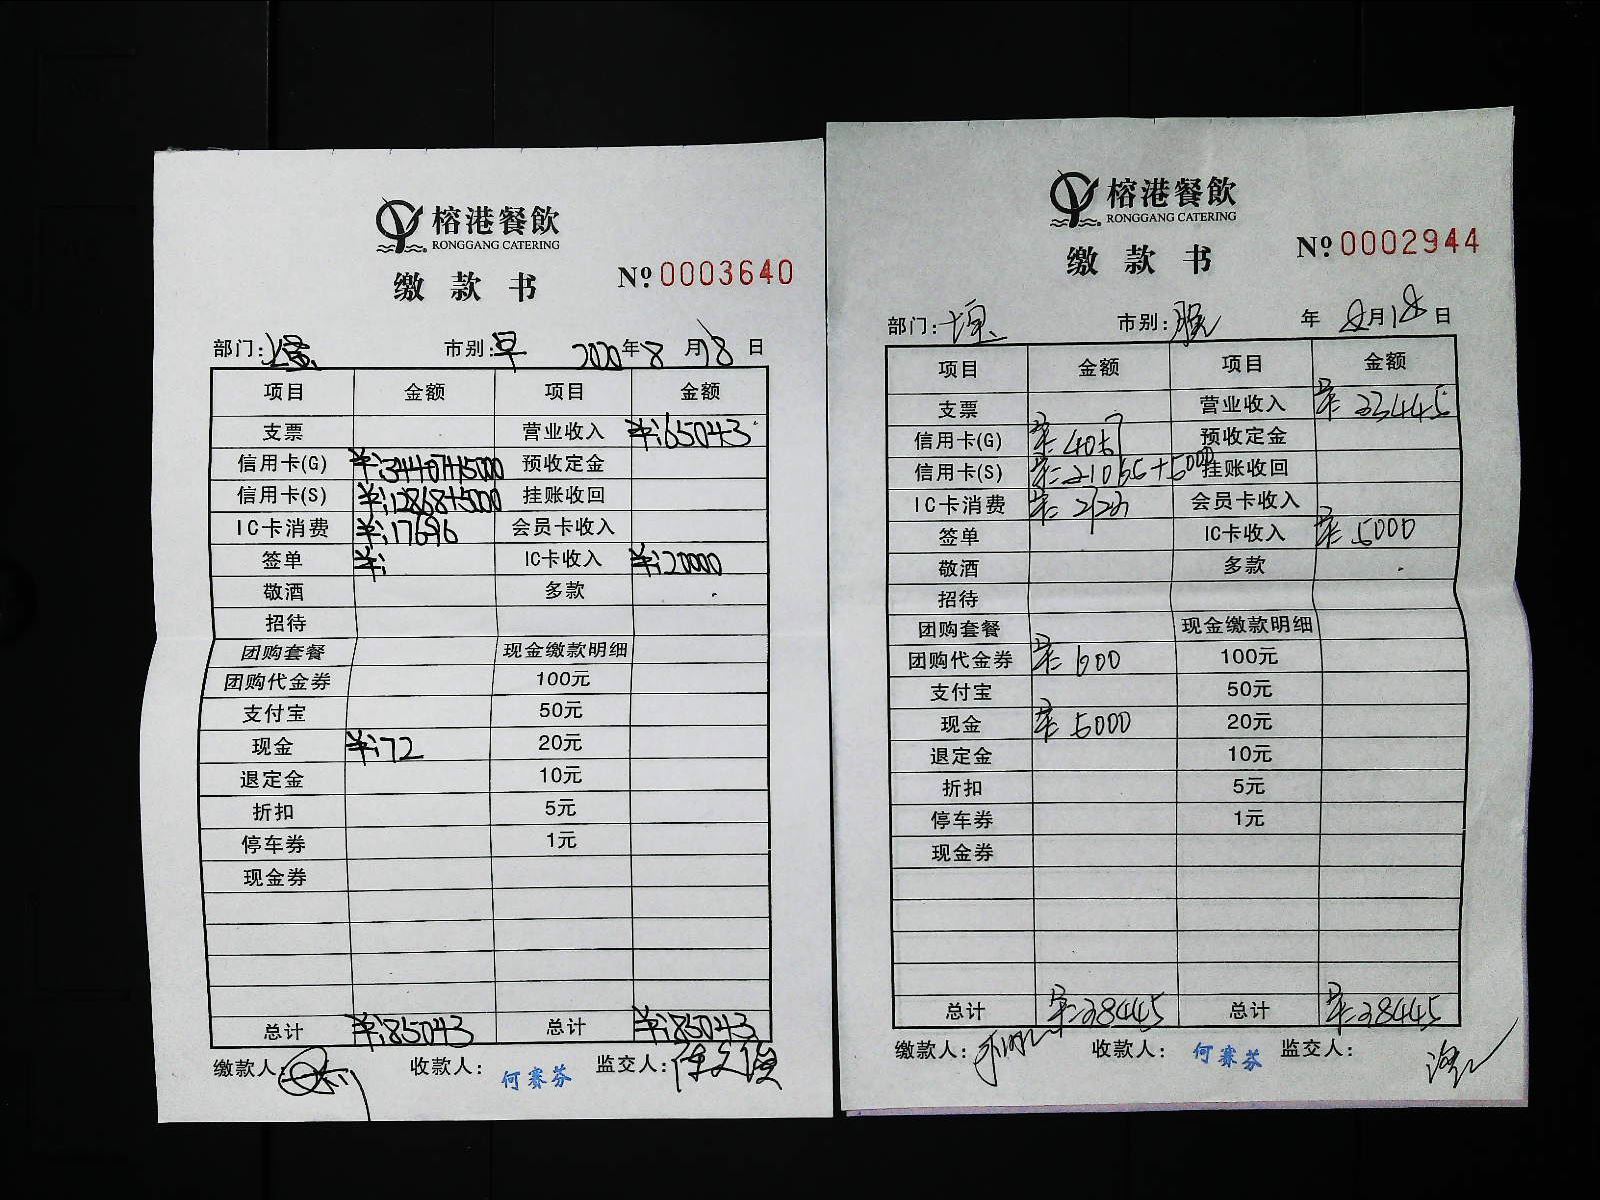 榕港餐飲
RONGGANG CATERING
缴款书
№ 0003640
部门: 市别: 早 2020年8月18日
项目 金额 项目 金额
支票 营业收入 ¥:65043
信用卡(G) ¥:34407+15000 预收定金
信用卡(S) ¥:12868+5000 挂账收回
IC卡消费 ¥:17696 会员卡收入
签单 ¥: IC卡收入 ¥:20000
敬酒 多款
招待
团购套餐 现金缴款明细
团购代金券 100元
支付宝 50元
现金 ¥:72 20元
退定金 10元
折扣 5元
停车券 1元
现金券
总计 ¥:85043 总计 ¥:85043
缴款人: 收款人: 何赛芬 监交人:
榕港餐飲
RONGGANG CATERING
缴款书
№ 0002944
部门: 市别: 年 8月18日
项目 金额 项目 金额
支票 营业收入 ¥: 33445
信用卡(G) ¥: 预收定金
信用卡(S) ¥: +5000 挂账收回
IC卡消费 ¥: 会员卡收入
签单 IC卡收入 ¥: 5000
敬酒 多款
招待
团购套餐 现金缴款明细
团购代金券 ¥: 600 100元
支付宝 50元
现金 ¥: 5000 20元
退定金 10元
折扣 5元
停车券 1元
现金券
总计 ¥:38445 总计 ¥:38445
缴款人: 收款人: 何赛芬 监交人: